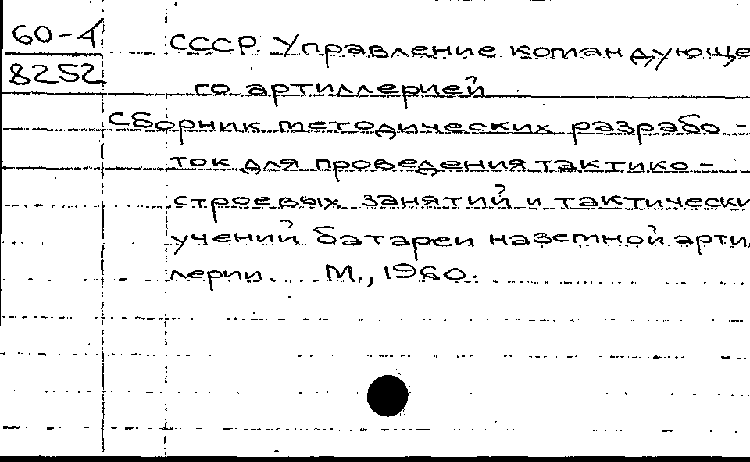 60-4
8252
СССР. Управление командующе
го артиллерией
Сборник методических разрабо-
ток для проведения тактико-
строевых занятий и тактически
учений батареи наземной арти
лерии. М., 1960.